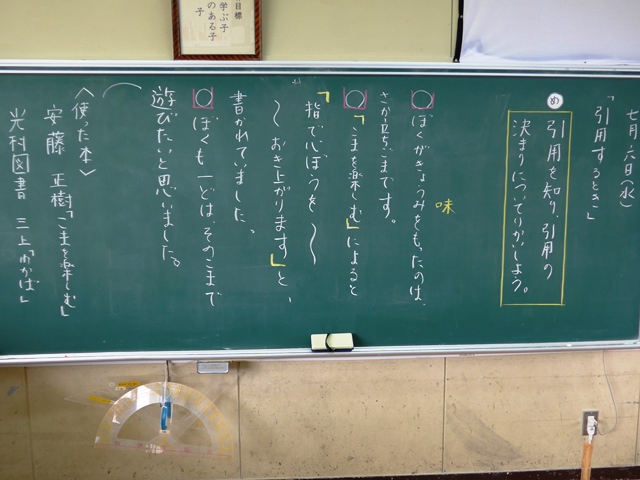 目標
学ぶ子
のある子
子
七月六日(水)
「引用するとき」
め
引用を知り、引用の
決まりについてりかいしよう。
味
ぼくがきょうみをもったのは、
さか立ちごまです。
「こまを楽しむ」によると
「指で心ぼうを〜
〜おき上がります」と、
書かれていました。
ぼくも一どは、そのこまで
遊びたいと思いました。
〈使った本〉
安藤 正樹「こまを楽しむ」
光村図書 三上「わかば」